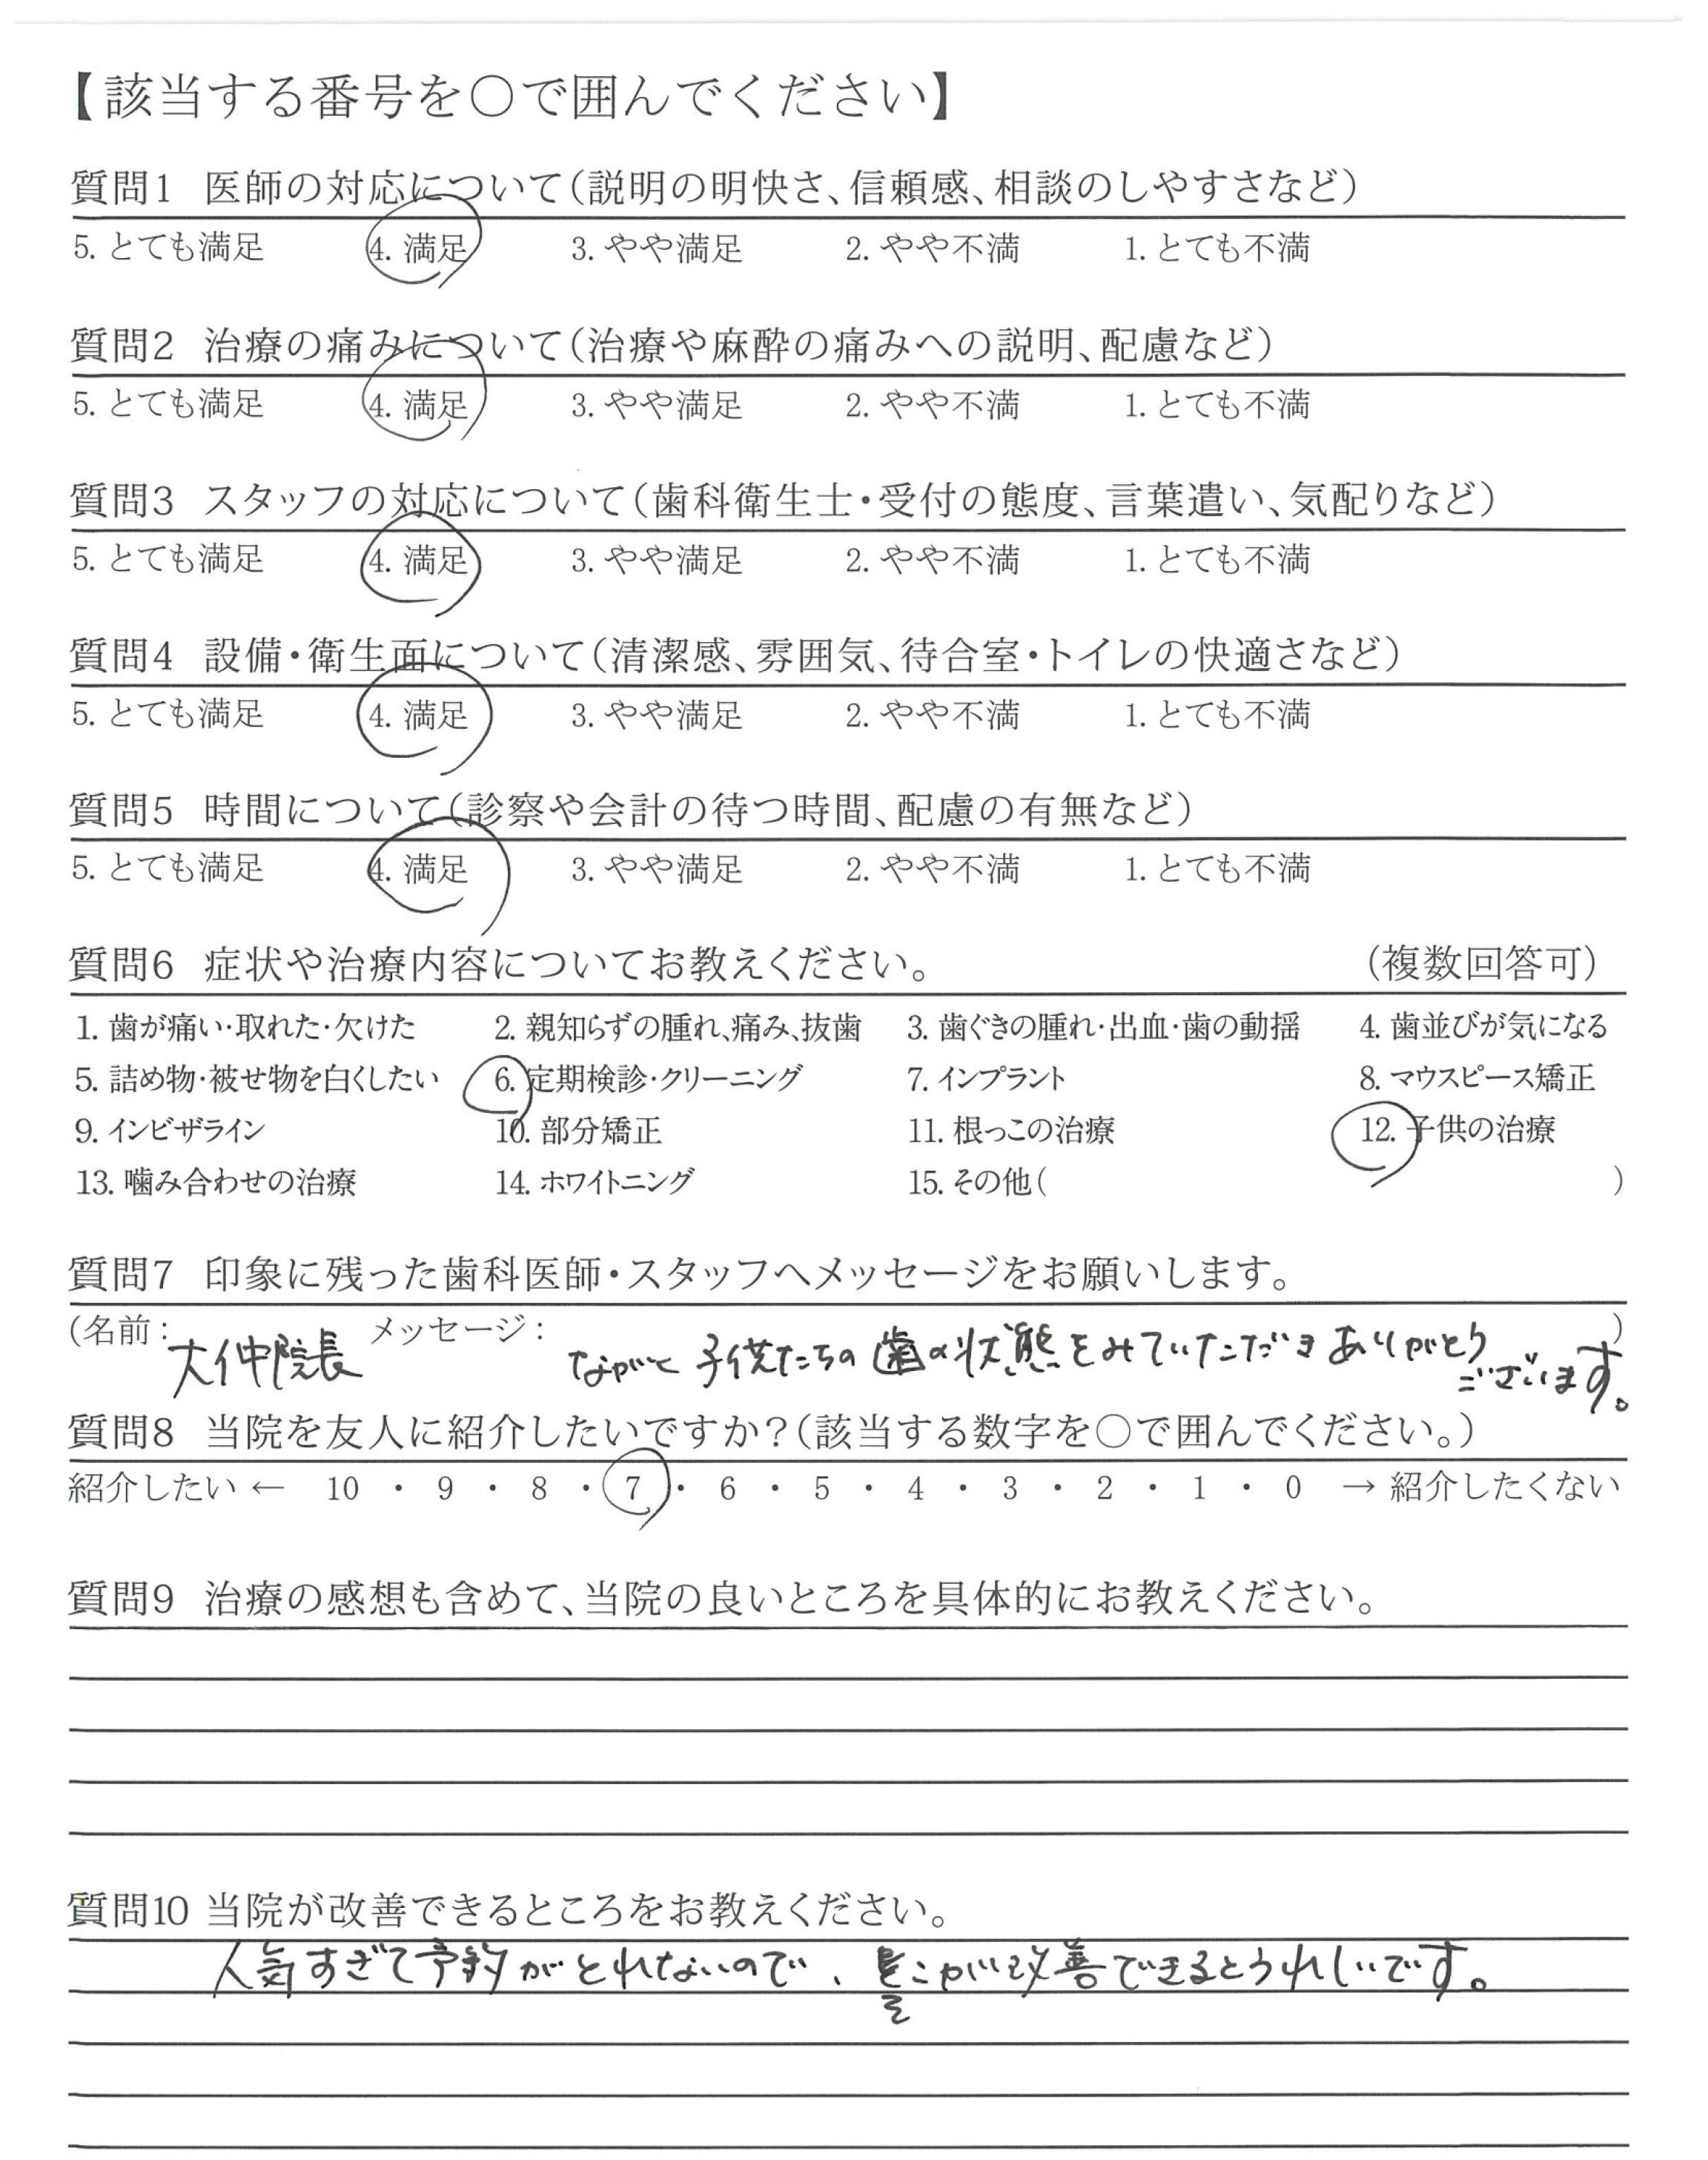 【該当する番号を○で囲んでください】
質問1 医師の対応について(説明の明快さ、信頼感、相談のしやすさなど)
5. とても満足 4. 満足 3. やや満足 2. やや不満 1. とても不満
質問2 治療の痛みについて(治療や麻酔の痛みへの説明、配慮など)
5. とても満足 4. 満足 3. やや満足 2. やや不満 1. とても不満
質問3 スタッフの対応について(歯科衛生士・受付の態度、言葉遣い、気配りなど)
5. とても満足 4. 満足 3. やや満足 2. やや不満 1. とても不満
質問4 設備・衛生面について(清潔感、雰囲気、待合室・トイレの快適さなど)
5. とても満足 4. 満足 3. やや満足 2. やや不満 1. とても不満
質問5 時間について(診察や会計の待つ時間、配慮の有無など)
5. とても満足 4. 満足 3. やや満足 2. やや不満 1. とても不満
質問6 症状や治療内容についてお教えください。 (複数回答可)
1. 歯が痛い・取れた・欠けた 2. 親知らずの腫れ、痛み、抜歯 3. 歯ぐきの腫れ・出血・歯の動揺 4. 歯並びが気になる
5. 詰め物・被せ物を白くしたい 6. 定期検診・クリーニング 7. インプラント 8. マウスピース矯正
9. インビザライン 10. 部分矯正 11. 根っこの治療 12. 子供の治療
13. 噛み合わせの治療 14. ホワイトニング 15. その他( )
質問7 印象に残った歯科医師・スタッフへメッセージをお願いします。
(名前: 大仲院長 メッセージ: ながいこと子供たちの歯の状態をみていただきありがとう )
ございます。
質問8 当院を友人に紹介したいですか?(該当する数字を○で囲んでください。)
紹介したい ← 10 ・ 9 ・ 8 ・ 7 ・ 6 ・ 5 ・ 4 ・ 3 ・ 2 ・ 1 ・ 0 → 紹介したくない
質問9 治療の感想も含めて、当院の良いところを具体的にお教えください。
質問10 当院が改善できるところをお教えください。
人気すぎて予約がとれないので、そこがい改善できるとうれしいです。